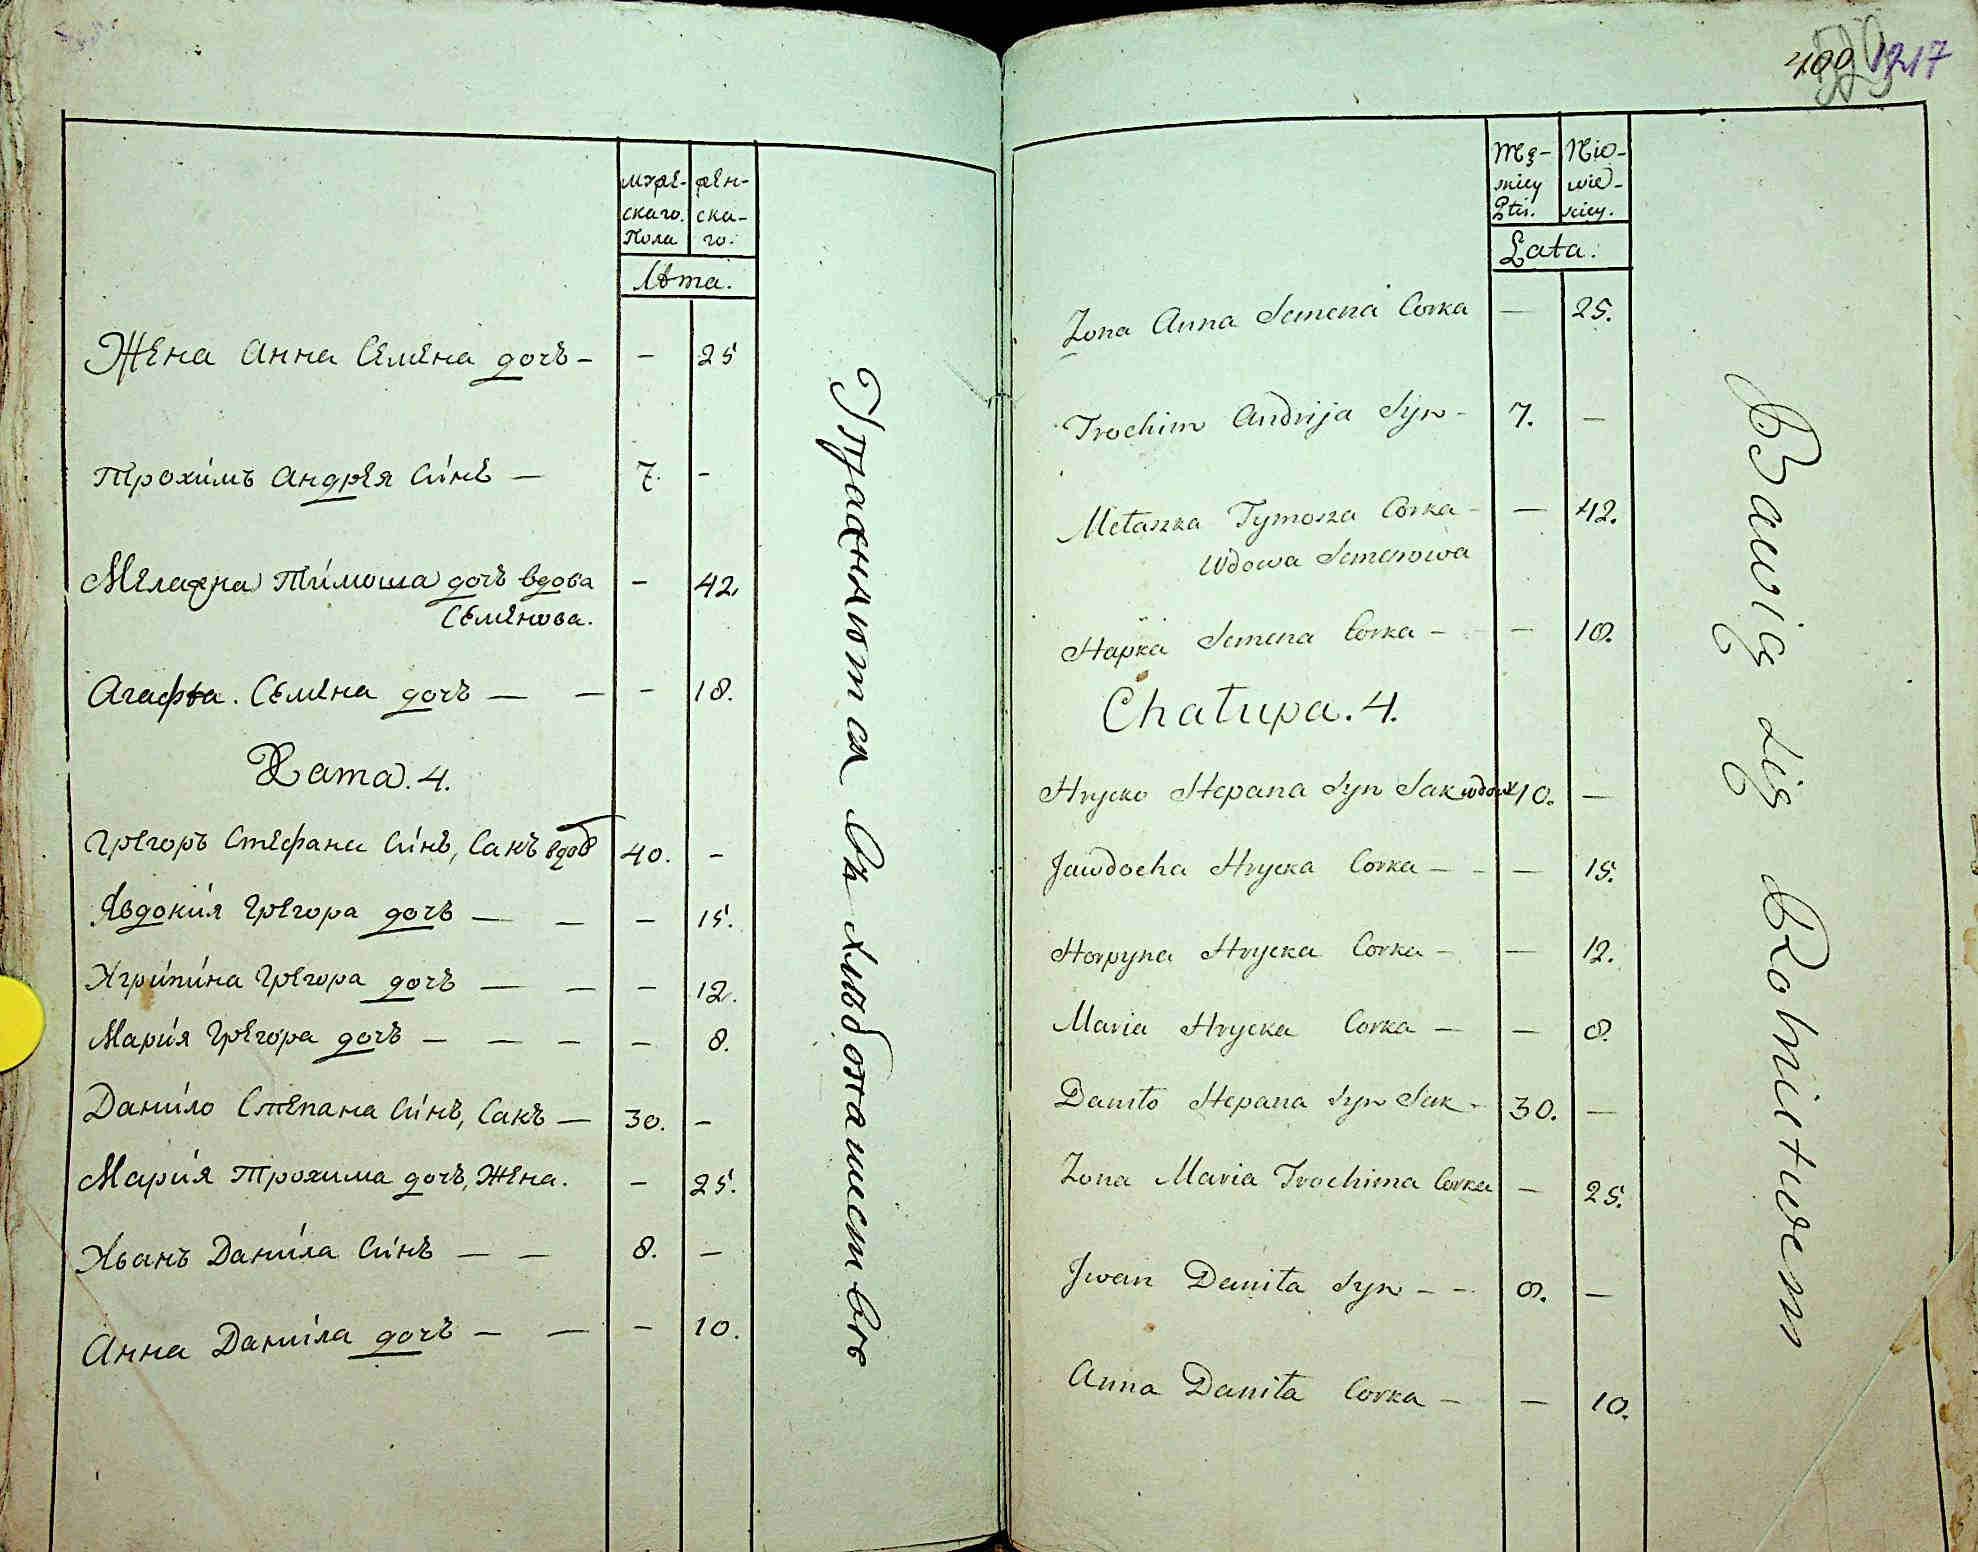 мужε-
скаго.
Пола
жεн-
ска-
го.
Лѣта.
Жεна Анна Сεмεна дочъ - - 25
Трохимъ Андрεя Синъ — 7. -
Мεлажна Тимоша дочъ вдова - 42.
Сεмεнова.
Агафѣа. Сεмεна дочъ — — - 18.
Хата. 4.
Грεгоръ Стεфана Синъ, Сакъ вдов 40. -
Явдокия Грεгора дочъ — — - 15.
Агрипина Грεгора дочъ — — - 12.
Мария Грεгора дочъ — — — - 8.
Данило Стεпана Синъ, Сакъ — 30. -
Мария Трохима дочъ, Жεна. - 25.
Иванъ Данила Синъ — — 8. -
Анна Данила дочъ — — - 10.
Упражняются въ хлѣбопашествѣ
400 1217
Mę-
skiey
Płci.
Nie-
wie-
sciey.
Lata.
Zona Anna Semena Corka — 25.
Trochim Andrija Syn - 7. —
Mełaszka Tymosza Corka - — 42.
Wdowa Semenowa
Hapka Semena Corka - — 18.
Chałupa. 4.
Hrycko Stepana Syn Sak wdow 40. —
Jawdocha Hrycka Corka — - — 15.
Horpyna Hrycka Corka - — 12.
Maria Hrycka Corka — — 8.
Daniło Stepana Syn Sak - 30. —
Zona Maria Trochima Corka — 25.
Jwan Daniła Syn - - 8. —
Anna Daniła Corka - — 10.
Bawią się Rolnictwem